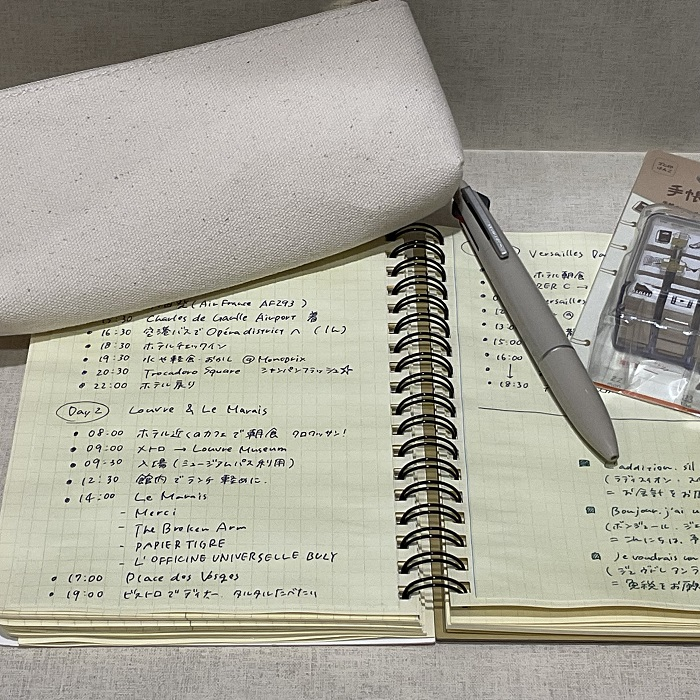 (Air France AF293)
Charles de Gaulle Airport 着
16:30 空港バスでOpéra districtへ (1h)
18:30 ホテルチェックイン
19:30 水や軽食・おかし @Monoprix
20:30 Trocadoro Square シャンパンフラッシュ☆
22:00 ホテル戻り
Day 2 Louvre & Le Marais
08:00 ホテル近くのカフェで朝食 クロワッサン!
09:00 メトロ → Louvre Museum
09:30 入場(ミュージアムパス利用)
12:30 館内でランチ 軽めに.
14:00 Le Marais
- Merci
- The Broken Arm
- PAPIER TIGRE
- L'OFFICINE UNIVERSELLE BULY
17:00 Place des Vosges
19:00 ビストロでディナー タルタルたべたい
Versailles Da
ホテル朝食
RER C →
ersailles
15:00
16:00
↓
18:30
addition, s'il
= お会計をお
Bonjour, j'ai
(ボンジュール、ジェ
= こんにちは、予
Je voudrais
(ジュヴドレ
= 免税をお願
手帳